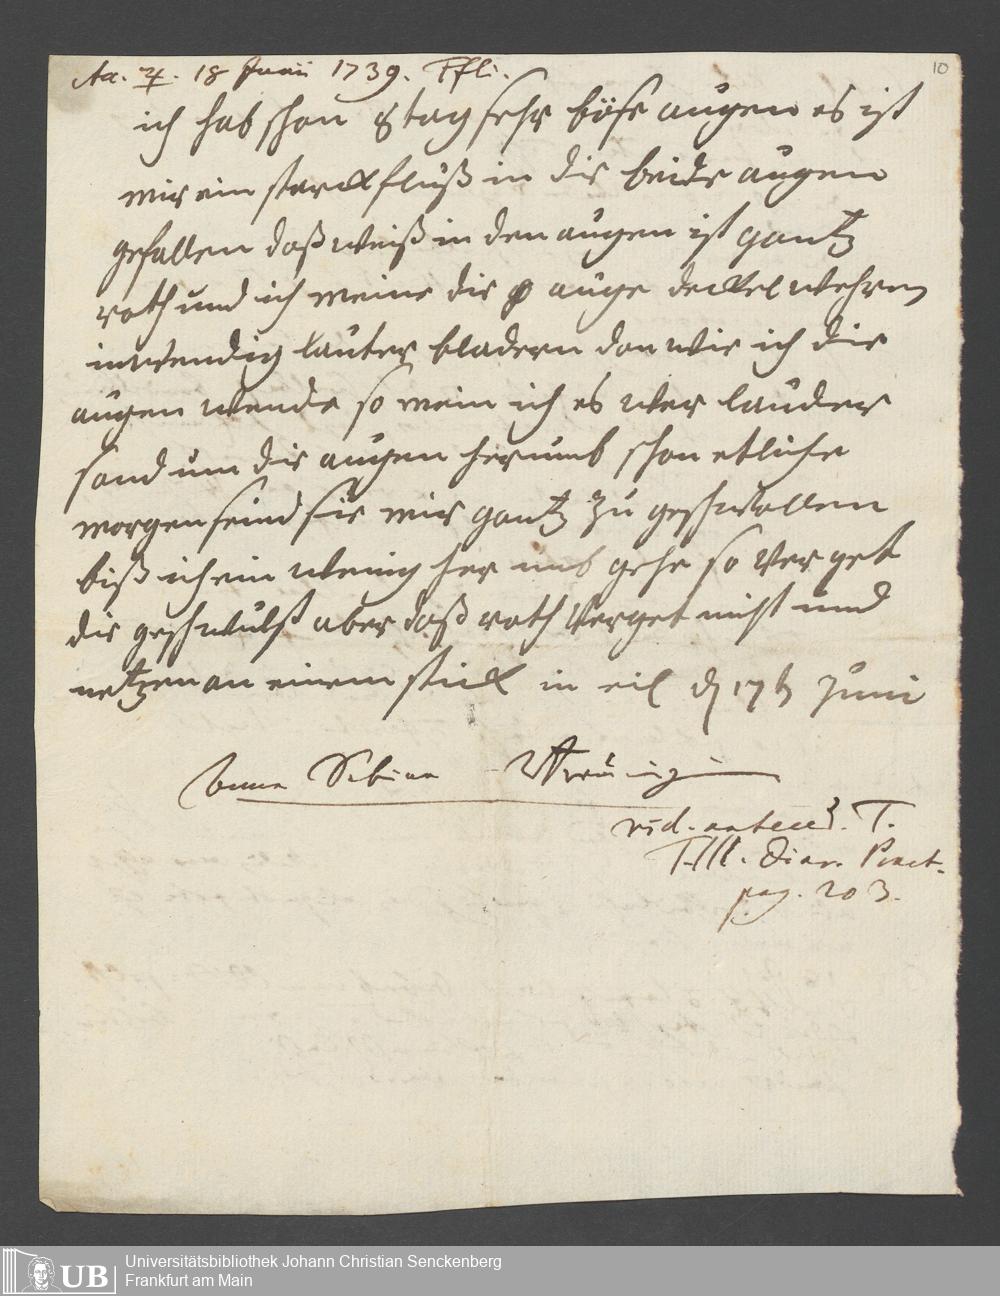 10
Aa. ♃. 18 Junii 1739. Ffti.
ich hab schon 8 tag sehr böse augen es ist
mir ein starck fluß in die beide augen
gefallen daß weiß in den augen ist gantz
roth und ich meine die auge deckel wehren
inwendig lauter bladern dan wie ich die
augen wende so mein ich es wer lauder
sand um die augen herumb schon etliche
morgen seind sie mir gantz zu geschwollen
biß ich ein wenig her umb gehe so verget
die geschwulst aber daß roth verget nicht und
netzen an einem stück in eil d 17t Juni
Anna Sibina
vid. anteced. T.
T. III. Diar. Pract.
pag. 203.
UB
Universitätsbibliothek Johann Christian Senckenberg
Frankfurt am Main